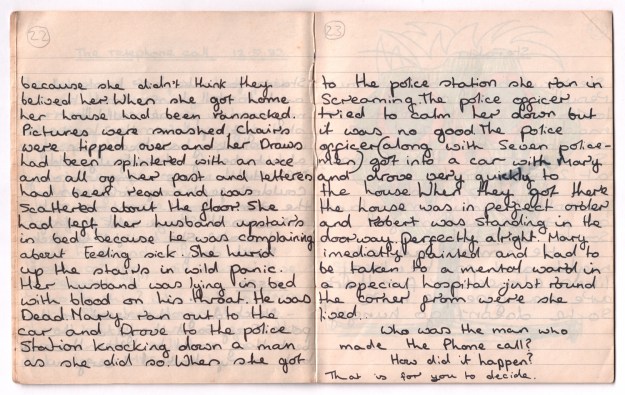 22
because she didn't think they
belived her. When she got home
her house had been ransacked.
Pictures were smashed, Chairs
were tipped over and her Draws
had been splintered with an axe
and all of her past and letteres
had been read and was
Scattered about the floor. She
had left her husband upstairs
in bed because he was complaining
about feeling sick. She hurid
up the stairs in wild panic.
Her husband was lying in bed
with blood on his throat. He was
Dead. Mary ran out to the
car and Drove to the police
Station knocking down a man
as she did so. When she got
23
to the police station she ran in
Screaming. The police officer
tried to calm her down but
it was no good. The police
officer (along with Seven police-
men) got into a car with Mary
and drove very quickly to
the house. When they got there
the house was in perfect order
and Robert was standing in the
doorway, perfectly alright. Mary
imediatly painted and had to
be taken to a mental ward in
a special hospital just round
the corner from were she
lived.
Who was the man who
made the Phone call?
How did it happen?
That is for you to decide.